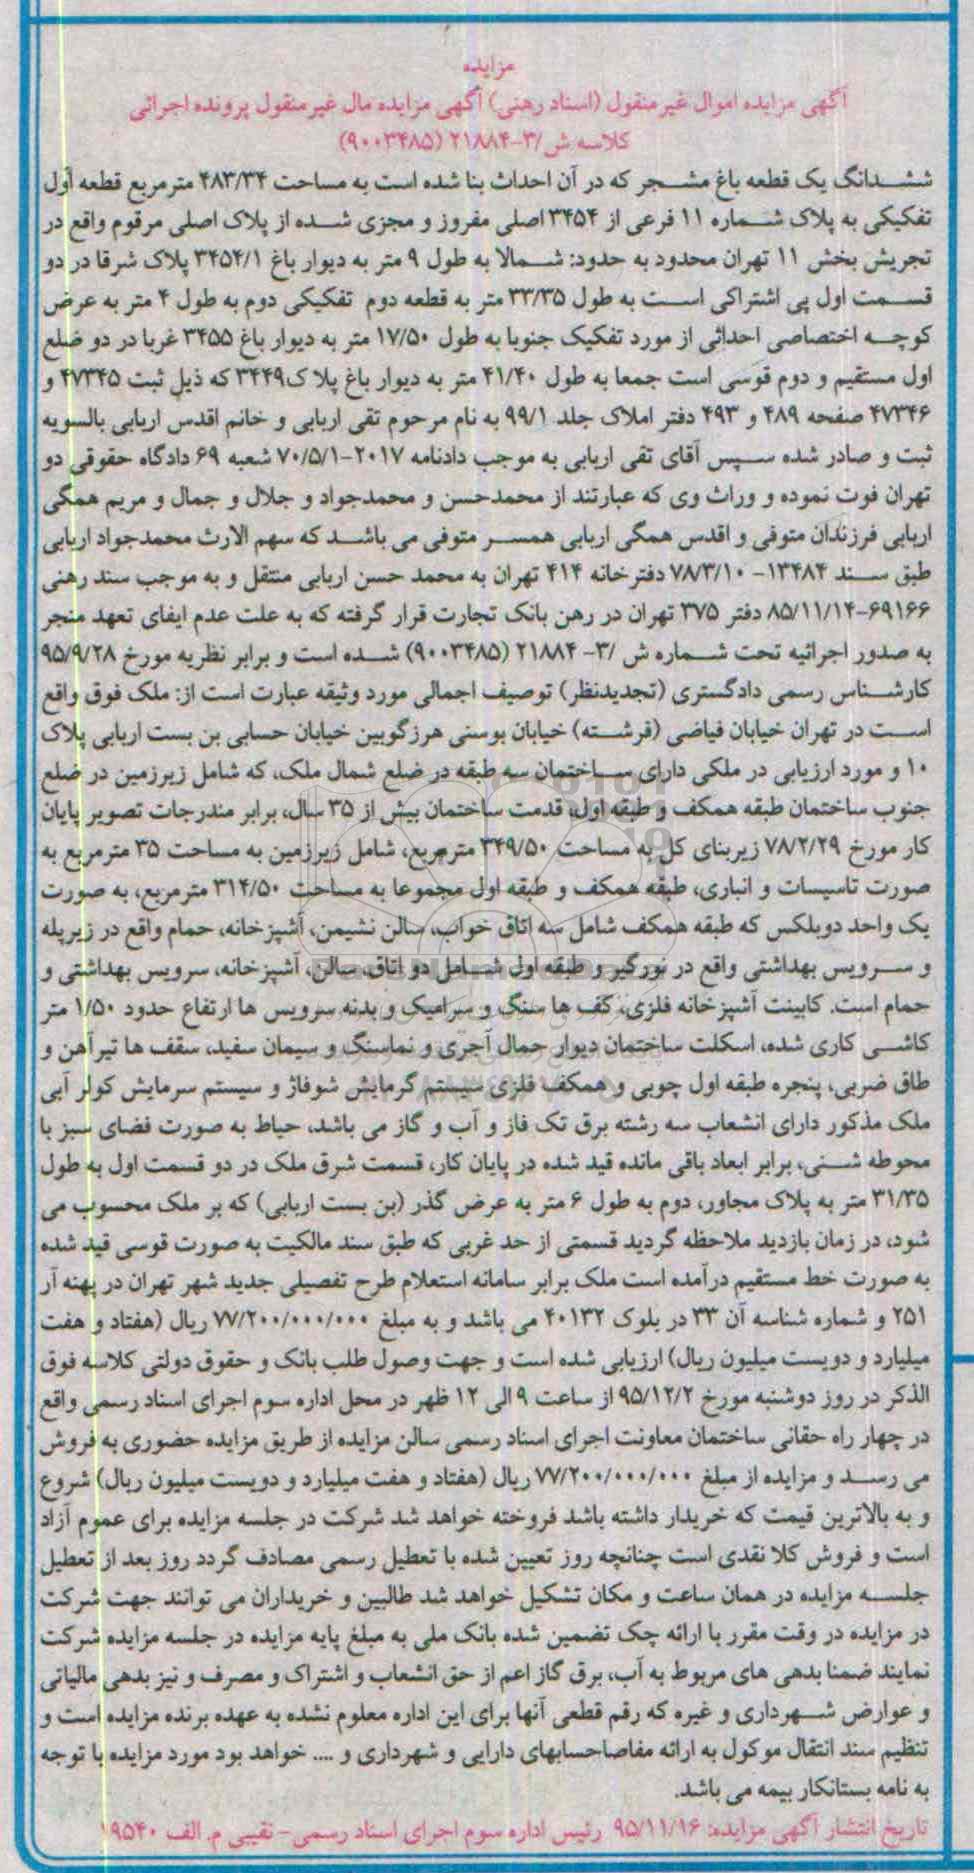 مزایده
آگهی مزایده اموال غیرمنقول (اسناد رهنی) آگهی مزایده مال غیرمنقول پرونده اجرائی
کلاسه ش/۳-۲۱۸۸۴ (۹۰۰۳۴۸۵)
ششدانگ یک قطعه باغ مشجر که در آن احداث بنا شده است به مساحت ۴۸۳/۳۴ مترمربع قطعه اول
تفکیکی به پلاک شماره ۱۱ فرعی از ۳۴۵۴ اصلی مفروز و مجزی شده از پلاک اصلی مرقوم واقع در
تجریش بخش ۱۱ تهران محدود به حدود: شمالا به طول ۹ متر به دیوار باغ ۳۴۵۴/۱ پلاک شرقا در دو
قسمت اول پی اشتراکی است به طول ۳۳/۳۵ متر به قطعه دوم تفکیکی دوم به طول ۴ متر به عرض
کوچه اختصاصی احداثی از مورد تفکیک جنوبا به طول ۱۷/۵۰ متر به دیوار باغ ۳۴۵۵ غربا در دو ضلع
اول مستقیم و دوم قوسی است جمعا به طول ۴۱/۴۰ متر به دیوار باغ پلاک۳۴۴۹ که ذیل ثبت ۴۷۳۴۵ و
۴۷۳۴۶ صفحه ۴۸۹ و ۴۹۳ دفتر املاک جلد ۹۹/۱ به نام مرحوم تقی اربابی و خانم اقدس اربابی بالسویه
ثبت و صادر شده سپس آقای تقی اربابی به موجب دادنامه ۲۰۱۷-۷۰/۵/۱ شعبه ۶۹ دادگاه حقوقی دو
تهران فوت نموده و وراث وی که عبارتند از محمدحسن و محمدجواد و جلال و جمال و مریم همگی
اربابی فرزندان متوفی و اقدس همگی اربابی همسر متوفی می باشد که سهم الارث محمدجواد اربابی
طبق سند ۱۳۴۸۴- ۷۸/۳/۱۰ دفترخانه ۴۱۴ تهران به محمد حسن اربابی منتقل و به موجب سند رهنی
۶۹۱۶۶-۸۵/۱۱/۱۴ دفتر ۳۷۵ تهران در رهن بانک تجارت قرار گرفته که به علت عدم ایفای تعهد منجر
به صدور اجرائیه تحت شماره ش /۳- ۲۱۸۸۴ (۹۰۰۳۴۸۵) شده است و برابر نظریه مورخ ۹۵/۹/۲۸
کارشناس رسمی دادگستری (تجدیدنظر) توصیف اجمالی مورد وثیقه عبارت است از: ملک فوق واقع
است در تهران خیابان فیاضی (فرشته) خیابان بوسنی هرزگوبین خیابان حسابی بن بست اربابی پلاک
۱۰ و مورد ارزیابی در ملکی دارای ساختمان سه طبقه در ضلع شمال ملک، که شامل زیرزمین در ضلع
جنوب ساختمان طبقه همکف و طبقه اول، قدمت ساختمان بیش از ۳۵ سال، برابر مندرجات تصویر پایان
کار مورخ ۷۸/۲/۲۹ زیربنای کل به مساحت ۳۴۹/۵۰ مترمربع، شامل زیرزمین به مساحت ۳۵ مترمربع به
صورت تاسیسات و انباری، طبقه همکف و طبقه اول مجموعا به مساحت ۳۱۴/۵۰ مترمربع، به صورت
یک واحد دوبلکس که طبقه همکف شامل سه اتاق خواب، سالن نشیمن، آشپزخانه، حمام واقع در زیرپله
و سرویس بهداشتی واقع در نورگیر و طبقه اول شامل دو اتاق، سالن، آشپزخانه، سرویس بهداشتی و
حمام است. کابینت آشپزخانه فلزی، کف ها سنگ و سرامیک و بدنه سرویس ها ارتفاع حدود ۱/۵۰ متر
کاشی کاری شده، اسکلت ساختمان دیوار حمال آجری و نماسنگ و سیمان سفید، سقف ها تیرآهن و
طاق ضربی، پنجره طبقه اول چوبی و همکف فلزی سیستم گرمایش شوفاژ و سیستم سرمایش کولر آبی
ملک مذکور دارای انشعاب سه رشته برق تک فاز و آب و گاز می باشد، حیاط به صورت فضای سبز با
محوطه شنی، برابر ابعاد باقی مانده قید شده در پایان کار، قسمت شرق ملک در دو قسمت اول به طول
۳۱/۳۵ متر به پلاک مجاور، دوم به طول ۶ متر به عرض گذر (بن بست اربابی) که بر ملک محسوب می
شود، در زمان بازدید ملاحظه گردید قسمتی از حد غربی که طبق سند مالکیت به صورت قوسی قید شده
به صورت خط مستقیم درآمده است ملک برابر سامانه استعلام طرح تفصیلی جدید شهر تهران در پهنه آر
۲۵۱ و شماره شناسه آن ۳۳ در بلوک ۴۰۱۳۲ می باشد و به مبلغ ۷۷/۲۰۰/۰۰۰/۰۰۰ ریال (هفتاد و هفت
میلیارد و دویست میلیون ریال) ارزیابی شده است و جهت وصول طلب بانک و حقوق دولتی کلاسه فوق
الذکر در روز دوشنبه مورخ ۹۵/۱۲/۲ از ساعت ۹ الی ۱۲ ظهر در محل اداره سوم اجرای اسناد رسمی واقع
در چهار راه حقانی ساختمان معاونت اجرای اسناد رسمی سالن مزایده از طریق مزایده حضوری به فروش
می رسد و مزایده از مبلغ ۷۷/۲۰۰/۰۰۰/۰۰۰ ریال (هفتاد و هفت میلیارد و دویست میلیون ریال) شروع
و به بالاترین قیمت که خریدار داشته باشد فروخته خواهد شد شرکت در جلسه مزایده برای عموم آزاد
است و فروش کلا نقدی است چنانچه روز تعیین شده با تعطیل رسمی مصادف گردد روز بعد از تعطیل
جلسه مزایده در همان ساعت و مکان تشکیل خواهد شد طالبین و خریداران می توانند جهت شرکت
در مزایده در وقت مقرر با ارائه چک تضمین شده بانک ملی به مبلغ پایه مزایده در جلسه مزایده شرکت
نمایند ضمنا بدهی های مربوط به آب، برق گاز اعم از حق انشعاب و اشتراک و مصرف و نیز بدهی مالیاتی
و عوارض شهرداری و غیره که رقم قطعی آنها برای این اداره معلوم نشده به عهده برنده مزایده است و
تنظیم سند انتقال موکول به ارائه مفاصاحسابهای دارایی و شهرداری و .... خواهد بود مورد مزایده با توجه
به نامه بستانکار بیمه می باشد.
تاریخ انتشار آگهی مزایده: ۹۵/۱۱/۱۶ رئیس اداره سوم اجرای اسناد رسمی- نقیبی م. الف ۱۹۵۴۰